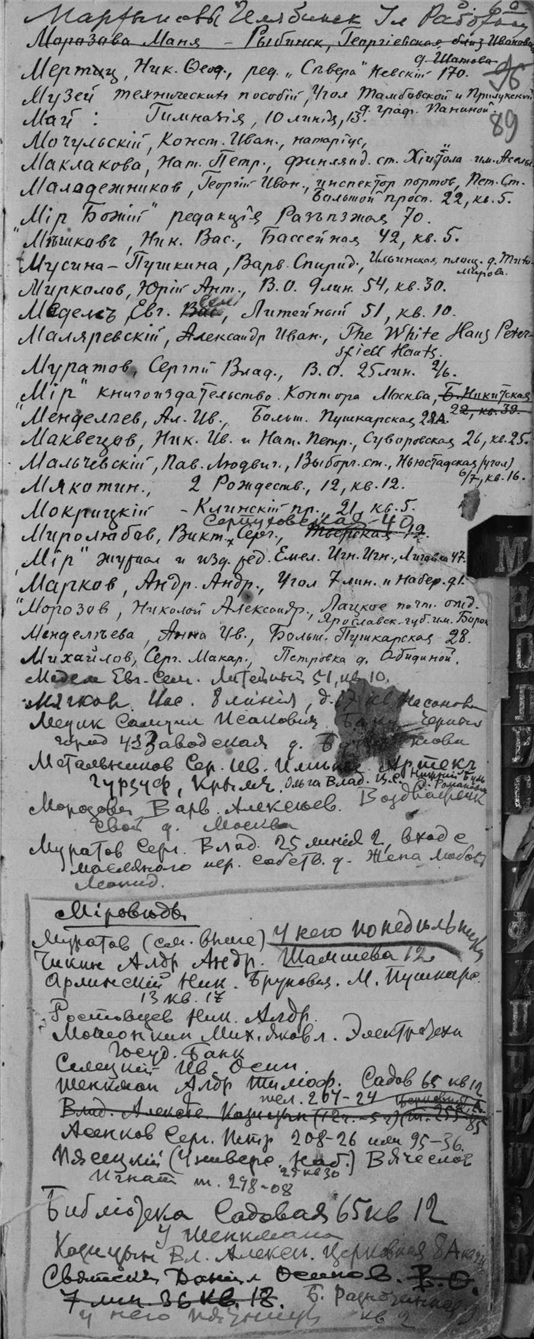 Мартыновы Челябинск Ул Рабочая
Морозова Маня - Рыбинск, Георгіевская, близ Иванова
д. Шатова 96
Мертцъ, Ник. Ѳеод., ред. „Сѣвера" Невскій 170.
Музей технических пособій, Угол Тамбовской и Прилукской
д. граф. Паниной.
Май : Гимназія, 10 линія, 13. 89
Мочульскій, Конст. Иван., натаріус,
Маклакова, Нат. Петр., финлянд. ст. Хіитола
Маладежников, Георгій Иван., инспектор портов, Пет. Ст.
Большой просп. 22, кв. 5.
„Мір Божій" редакція Разъѣзжая 70.
Мѣшковъ, Ник. Вас., Бассейная 42, кв. 5.
Мусина-Пушкина, Варв. Спирид., Ильинская площ. д. Тихо-
мирова.
Мирколов, Юрій Ант., В.О. 9 лин. 54, кв. 30.
Медемъ Евг. Сем., Литейный 51, кв. 10.
Маляревскій, Александр Иван., The White Haus Peter-
sfiell Hants.
Муратов, Сергѣй Влад., В.О. 25 лин. 2/6.
„Мір" книгоиздательство. Контора Москва, Б. Никитская
22, кв. 32.
Менделѣев, Ал. Ив., Больш. Пушкарская 28А.
Маквецов, Ник. Ив. и Нат. Петр., Суворовская 26, кв. 25.
Мальчевскій, Пав. Людвиг., Выборг. ст., Нюстадская (угол)
6/7, кв. 16.
Мякотин., 2 Рождеств., 12, кв. 12.
Мокрицкій - Клинскій пр. 21, кв. 5.
Серпуховская - 40
Миролюбов, Викт. Серг., Тверская 12
„Мір" журнал и изд. ред. Емел. Игн. Игн., Лиговка 47.
Марков, Андр. Андр., Угол 7 лин. и Набер. д. 1.
Морозов, Николай Александр., Лацкое почт. отд.
Ярославск. губ. им. Борок
Менделѣева, Анна Ив., Больш. Пушкарская 28.
Михайлов, Серг. Макар., Петровка д. Обидиной.
Медем Евг. Сем. Литейный 51, кв. 10.
Мягков. Вас. 8 линія, д. 17 кв Насонова
Медик Самуил Исакович Баку Черный
город 423 Заводская д.
Метальников Сер. Ив. Имѣніе Артек
Гурзуф, Крымъ. Ольга Влад.
Морозова Варв Алексѣев. Воздвиженк
свой д. Москва
Муратов Серг. Влад. 25 линія 2, вход с
масляного пер. собств. д. Жена Любовь
Леонид.
Міровѣды
Муратов (см. выше) у него понедѣльники
Чикин Алдр Андр. Шамшева 12
Ник. М. Пушкарс.
13 кв. 17
Ростовцев Ник. Алдр.
Моисонкин Мих. Яковл. Электротехн
Госуд. Банк
Селецкій Ив Осип.
Шенкман Алдр Тимоф. Садов 65 кв 12
тел. 207-24
Влад. Алексѣе. Казицын
Асенков Серг. Петр 208-26 или 95-36
Пясецкій (Универс. Каб.) Вячеслов
Игнат т. 248-08
Библіотека Садовая 65 кв 12
у Шенкмана
Казицын Вл. Алексѣ. Церковная 8А
Святскій Даніил Осипов. В.О.
7 лин. 36 кв. 18. Б. Разночинная
у него пятницы кв 2
М
Н
О
П
Р
С